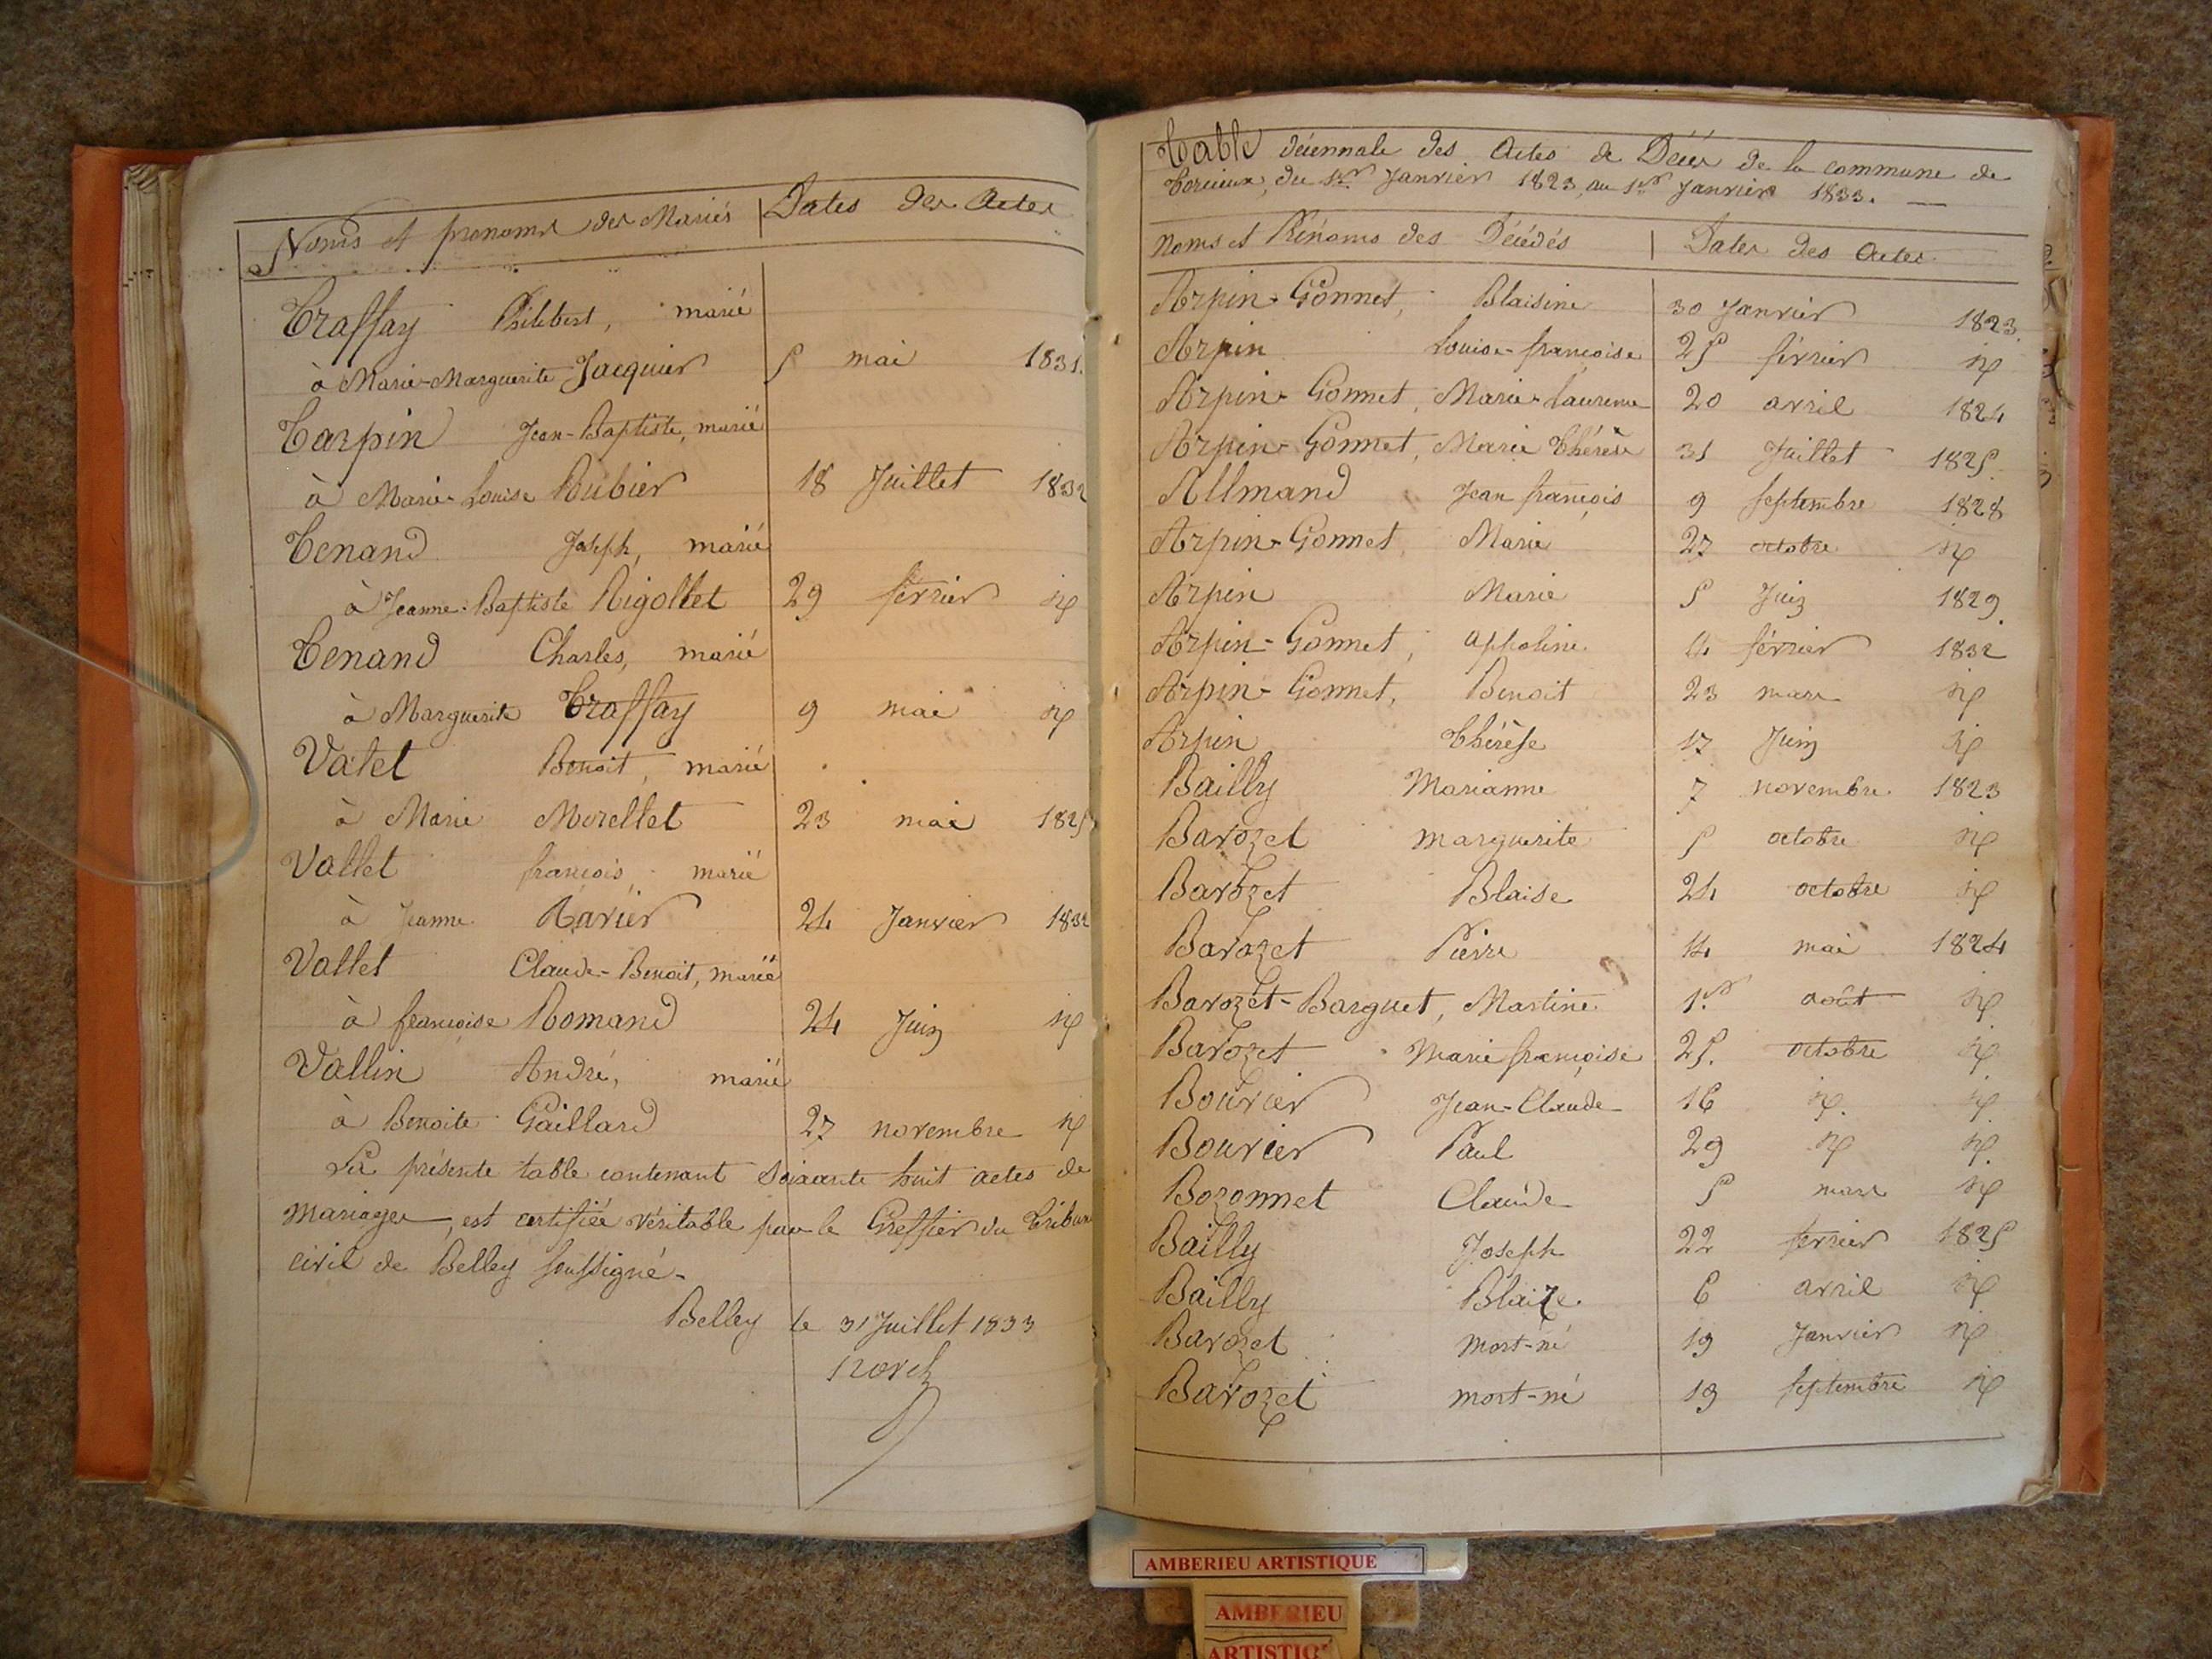 Noms et prenoms des Mariés | Dates des Actes
Traffay Philibert, marié
à Marie-Marguerite Jacquier 5 mai 1831.
Tarpin Jean-Baptiste, marié
à Marie Louise Bubier 18 Juillet 1832
Tenand Joseph, marié
à Jeanne-Baptiste Rigollet 29 février id
Tenand Charles, marié
à Marguerite Traffay 9 mai id
Vatet Benoit, marié
à Marie Morellet 23 mai 1825
Vallet françois marié
à Jeanne Ravier 24 Janvier 1832
Vallet Claude-Benoit, marié
à françoise Romand 24 Juin id
Vallin André, marié
à Benoite Gaillard 27 novembre id
La présente table contenant Soixante huit actes de
Mariages, est certifiée véritable par le Greffier du Tribun
civil de Belley soussigné-
Belley le 31 Juillet 1833
Table décennale des Actes de Décès de la commune de
Torcieux, du 1er Janvier 1823, au 1er Janvier 1833.
Noms et Prénoms des Décédés | Dates des Actes
Arpin-Gonnet, Blaisine 30 Janvier 1823.
Arpin Louise-françoise 25 février id
Arpin-Gonnet, Marie-Laurence 20 avril 1824
Arpin-Gonnet, Marie Thérèse 31 Juillet 1825.
Allmand Jean françois 9 septembre 1828
Arpin-Gonnet, Marie 27 octobre id
Arpin Marie 5 Juin 1829
Arpin-Gonnet, appoline 4 février 1832
Arpin-Gonnet, Benoit 23 mars id
Arpin Thérèse 17 Juin id
Bailly Marianne 7 novembre 1823
Barozet Marguerite 5 octobre id
Barozet Blaise 24 octobre id
Barozet Pierre 14 mai 1824
Barozet-Barguet, Martine 1.er août id
Barozet Marie françoise 25. octobre id
Bouvier Jean-Claude 16 id id
Bouvier Paul 29 id id
Bozonnet Claude 5 mars id
Bailly Joseph 22 fevrier 1825
Bailly Blaize 6 avril id
Barozet mort-né 19 Janvier id
Barozet mort-né 19 septembre id
AMBERIEU ARTISTIQUE
AMBERIEU